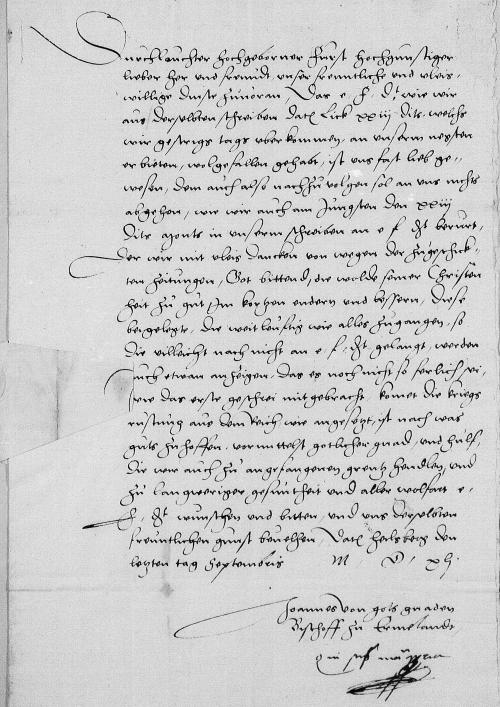 Durchlauchter hochgeborner Furst hochgunstiger
lieber her und freundt unser freuntliche und vleis,
willige dinste zuuoran, Das e f d^t wie wir
aus derselbten schreiben dat[um] Lick xxiij dits, welchs
wir gestrigs tags uberkommen, an unserm negsten
erbieten, wolgefallen gehabt, ist uns fast lieb ge,
wesen, dem auch also nachzu volgen sol an uns nichts
abgehen, wie wir auch am Jungsten den xxiij
dits in unserm schreiben an e f dt berurt,
der wir mit vleis dancken von wegen der zugeschick,
ten zeitungen, Got bittend, die wolde seiner Christen
heit zu gut Im kortzen endern und bessern, diese
beigelegte, die weitleuftig wie alles zugangen, so
die villeicht noch nicht an e f dt gelangt, werden
auch etwan anzeigen, das es noch nicht so ferlich sei
wie das erste geschrei mitgebracht, komet die kriegs
rustung aus dem Reich wie angesetzt, ist noch was
guts zuhoffen, vormittelst gotlicher gnad, und hulf,
die wir auch zu angefangenen grentz handlen, und
zu langweriger gesuntheit und aller wolfart e
f dt wunschen und bitten, und uns derselbten
freuntlichen gunst beuelhen, Dat[um] Heilsberg den
letzten tag Septembris M D xlj
Joannes von gots gnaden
Bischoff zu Ermelandt